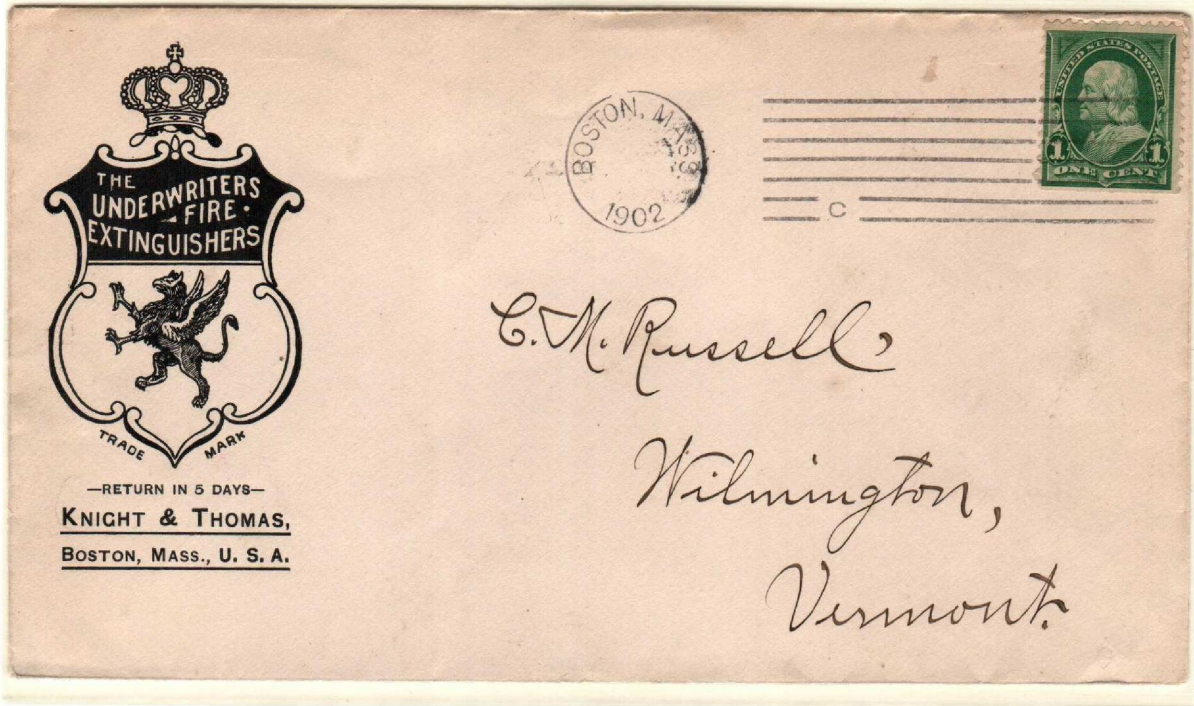 THE
UNDERWRITERS
FIRE
EXTINGUISHERS
TRADE MARK
—RETURN IN 5 DAYS—
KNIGHT & THOMAS,
BOSTON, MASS., U. S. A.
BOSTON, MASS
1902
C
UNITED STATES POSTAGE
1 1
ONE CENT
C. M. Russell,
Wilmington,
Vermont.